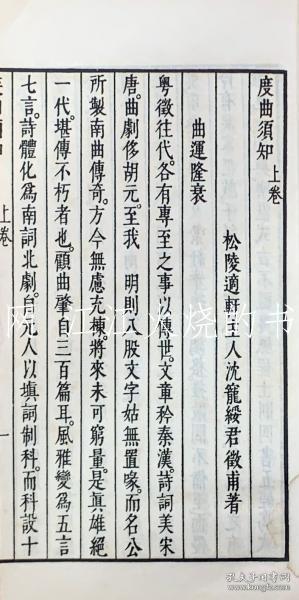 度曲須知 上卷
松陵適軒主人沈寵綏君徵甫著
曲運隆衰
粤徵往代。各有專至之事以傳世。文章矜秦漢。詩詞美宋
唐。曲劇侈胡元。至我 明則八股文字姑無置喙。而名公
所製南曲傳奇。方今無慮充棟。將來未可窮量。是眞雄絕
一代。堪傳不朽者也。顧曲肇自三百篇耳。風雅變爲五言
七言。詩體化爲南詞北劇。自元人以塡詞制科。而科設十
上卷
一
孔夫子旧书网